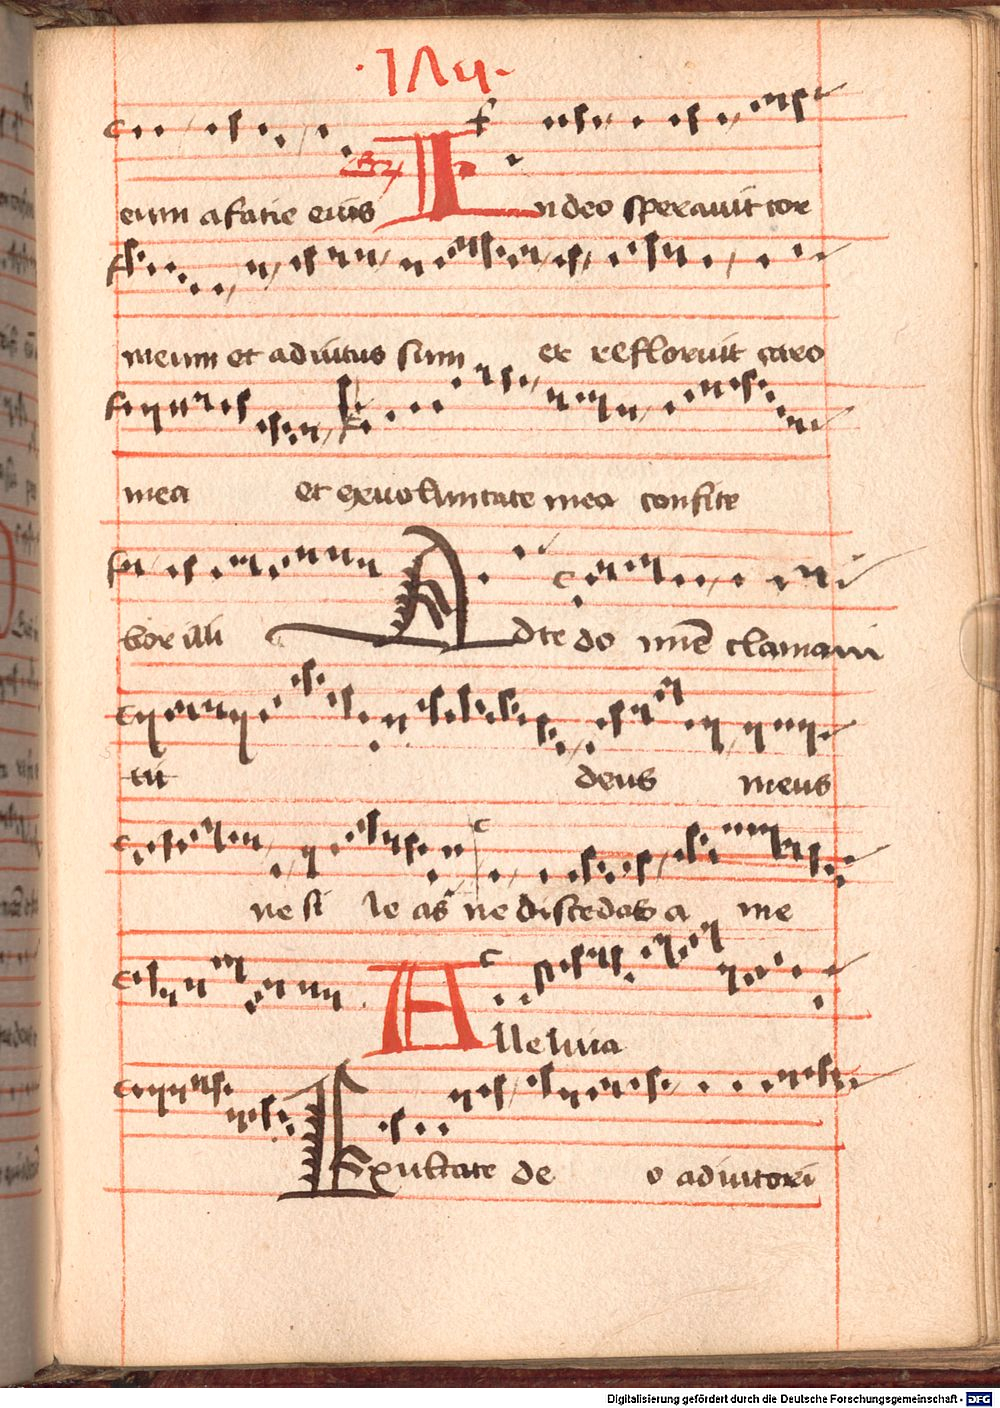 eum a facie eius In deo sperauit cor
meum et adiutus sum et refloruit caro
mea et ex uoluntate mea confite
bor illi Ad te do minē clamaui
tit deus meus
ne si le as ne discedas a me
Alleluia
Exultate de o adiutori
Digitalisierung gefördert durch die Deutsche Forschungsgemeinschaft - DFG